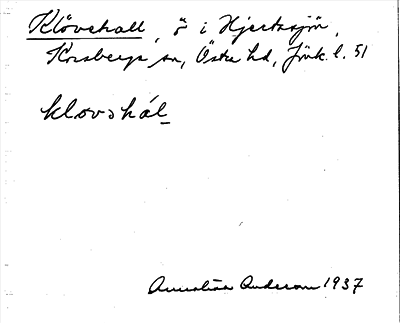 Klövehall, ö i Hjertasjön,
Korsberga sn, Östra hd, Jönk. l. 51
klovshál
Annalisa Anderson 1937